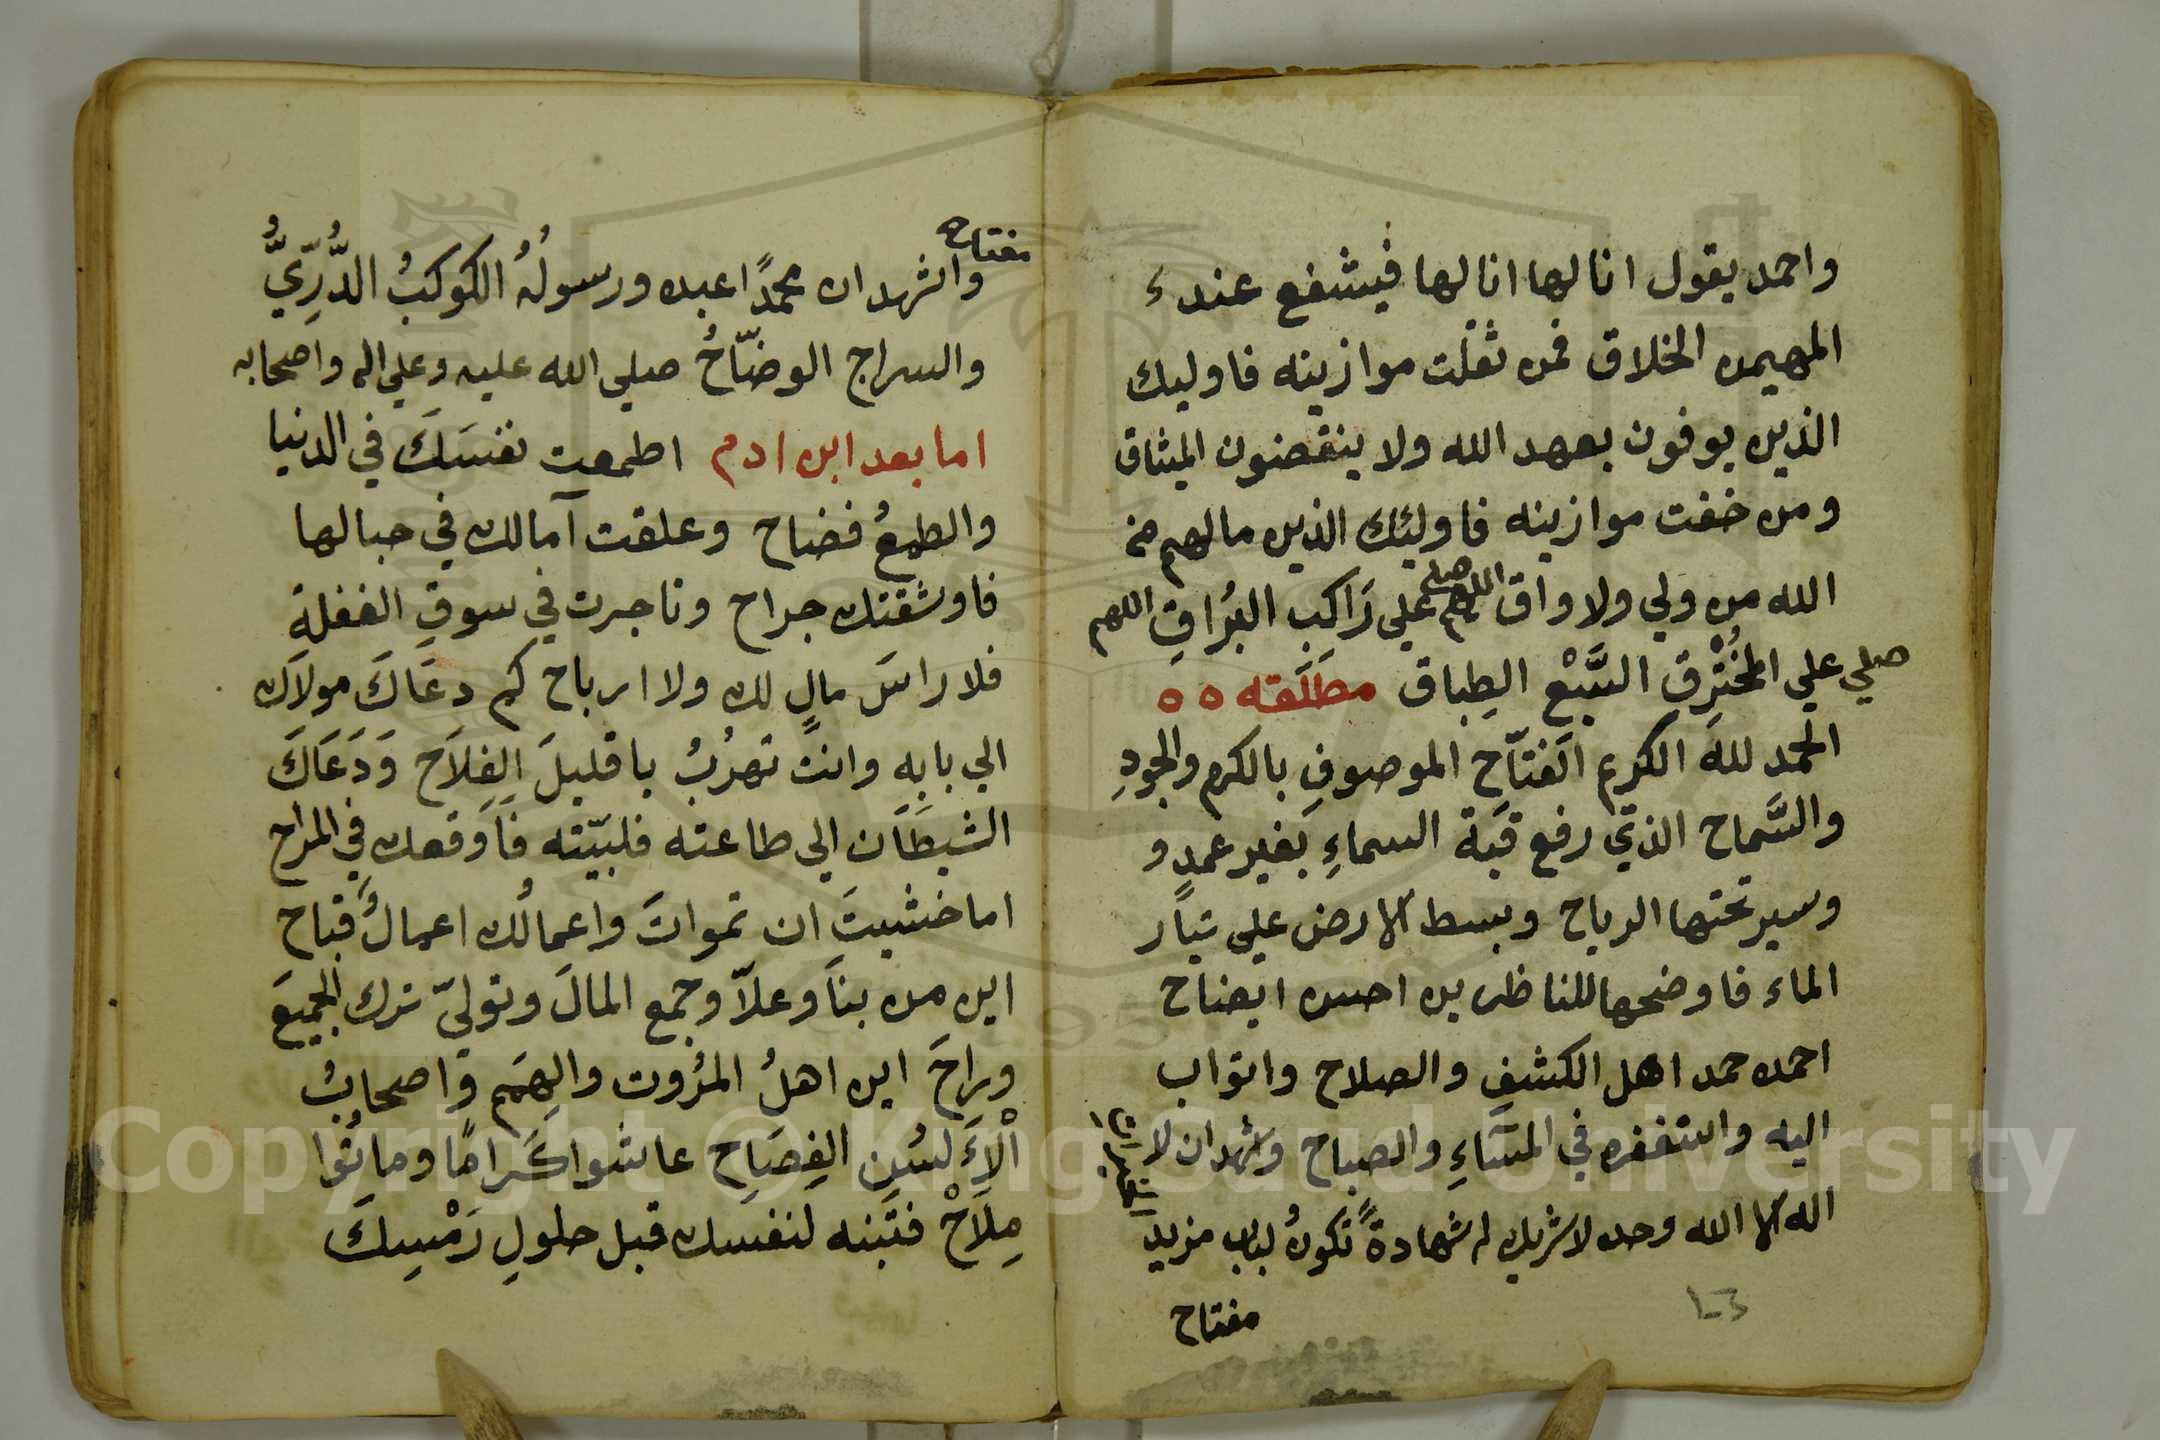 واحمد يقول انا لها انا لها فيشفع عند
المهيمن الخلاق فمن ثقلت موازينه فاوليك
الذين يوفون بعهد الله ولا ينقضون الميثاق
ومن خفت موازينه فاوليك الذين مالهم من
الله من ولي ولا واق اللهم صلي علي رَاكِبِ البُرَاقِ اللهم
صلي علي المخُتْرِقِ السَّبْعِ الطِباق مطلَقه ٥٥
الحمد للهَ الكريم الفتّاحِ الموصوفِ بالكرم والجودِ
والسَّماح الذي رفع قبَة السماءِ بغير عمدٍ و
وسير تحتها الرياح وبسط الارض علي تيار
الماء فاوضحها للناظرين احسن ايضاح
احمده حمد اهل الكشفِ والصلاح واتواب
اليه واستغفره في المسَاءِ والصباح واشهد ان لا
اله الا الله وحده لا شريك له شهادةً تكونُ لباب مزيد
مفتاح
مفتاح
واشهد ان محمدًا عبده ورسولُهُ الكوكبُ الدُّرِّيُّ
والسراج الوضّاحُ صلي الله عليه وعلي اله واصحابه
اما بعد ابن ادم اطمعت نفسَكَ في الدنيا
والطمعُ فضاح وعلقت آمالك في حبالها
فاوشقتك جراح وتاجرت في سوقِ الغفلةِ
فلا راسَ مالٍ لك ولا ارباح كم دعَاكَ مولاك
الي بابهِ وانت تهرُبُ يا قليلَ الفِلاَح وَدَعَاكَ
الشيطَان الي طاعته فلبيّته فاَوقعك في المراح
اما خشيتَ ان تمواتَ واعمالُك اعمالٌ قباح
اين من بنا وعلاّ وجمع المالَ وتوليّ ترك الجميَع
وراحَ اين اهلُ المرُوت والهِمَم واصحابُ
الْاَلسُنِ الفِصَاح عاشوا كَرامًا وماتُوا
مِلَاحْ فتبنه لنفسك قبل حلولِ رَمْسِكَ
Copyright © King Saud University
1957